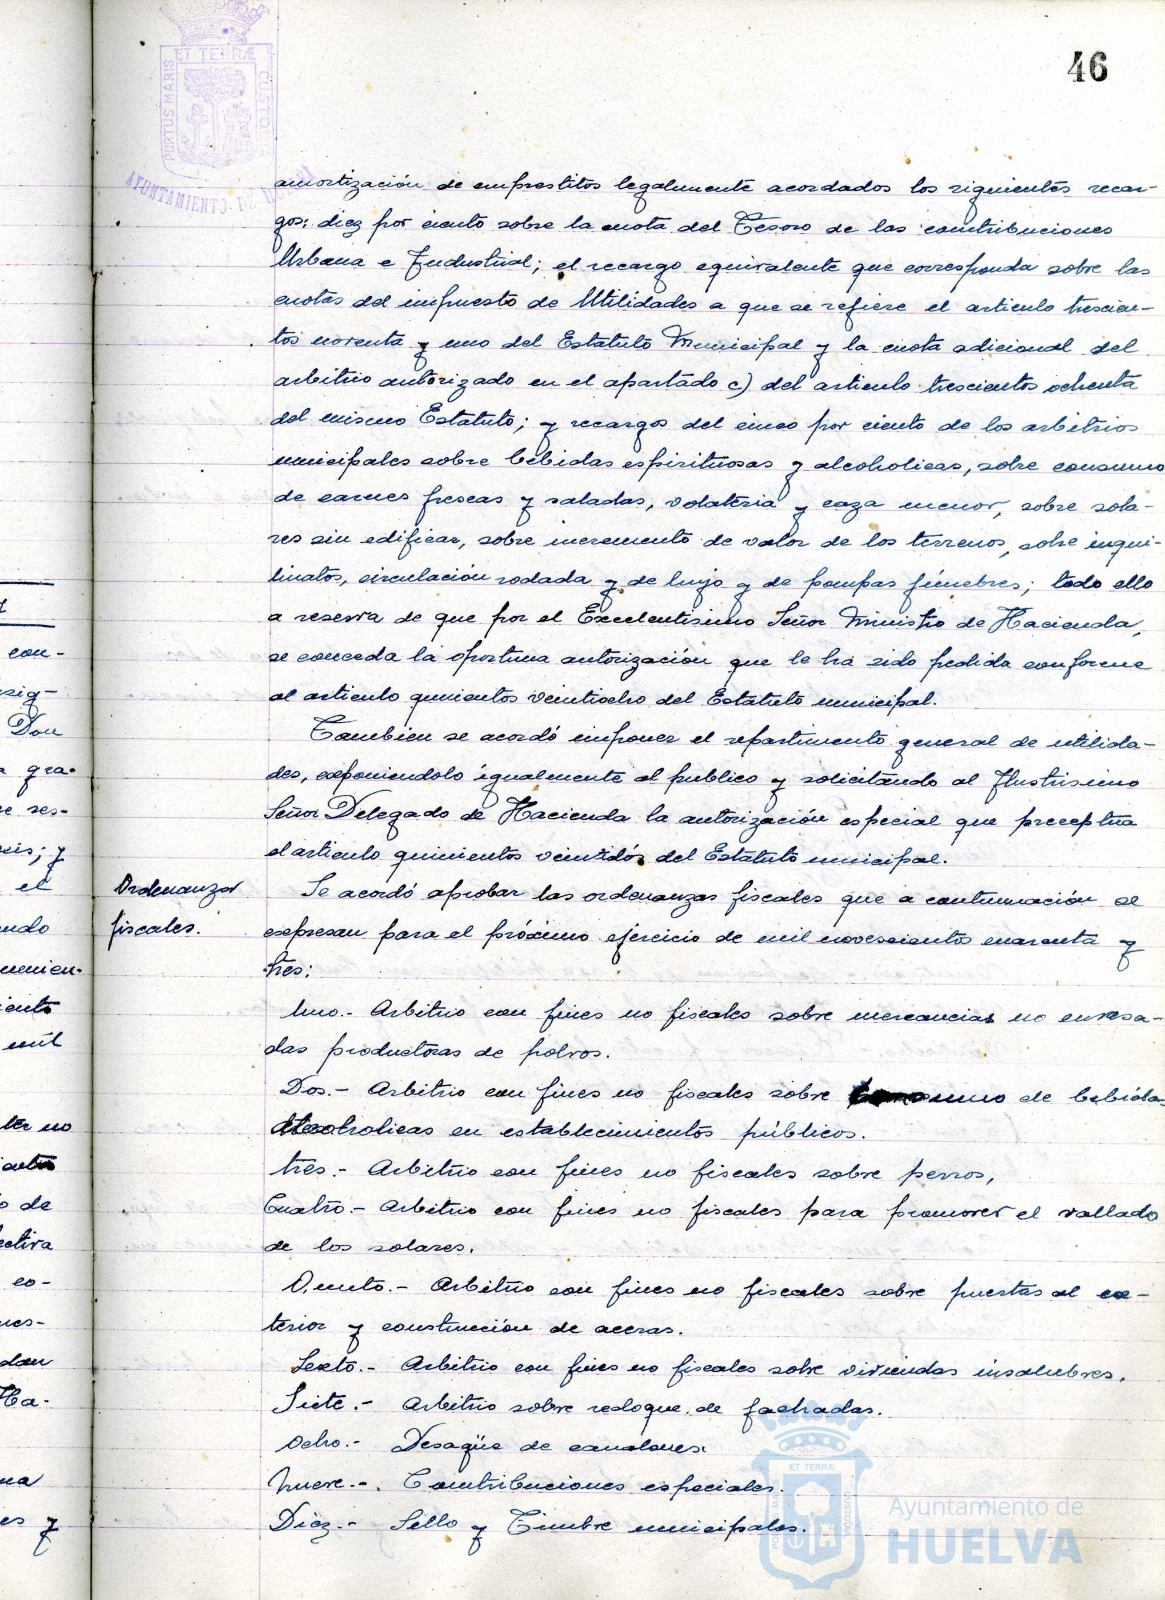 46
PORTUS MARIS ET TERRÆ CUSTO
AYUNTAMIENTO. DE
amortización de emprestitos legalmente acordados los siguientes recar-
gos: diez por ciento sobre la cuota del Tesoro de las contribuciones
Urbana e Industrial; el recargo equivalente que corresponda sobre las
cuotas del impuesto de Utilidades a que se refiere el articulo trescien-
tos noventa y uno del Estatuto Municipal y la cuota adicional del
arbitrio autorizado en el apartado c) del articulo trescientos ochenta
del mismo Estatuto; y recargos del cinco por ciento de los arbitrios
municipales sobre bebidas espirituosas y alcoholicas, sobre consumo
de carnes frescas y saladas, volateria y caza menor, sobre sola-
res sin edificar, sobre incremento de valor de los terrenos, sobre inqui-
linatos, circulación rodada y de lujo y de pompas fúnebres; todo ello
a reserva de que por el Excelentisimo Señor Ministro de Hacienda,
se conceda la oportuna autorización que le ha sido pedida conforme
al articulo quinientos veintiocho del Estatuto municipal.
Tambien se acordó imponer el repartimento general de utilida-
des, exponiendolo igualmente al publico y solicitando al Ilustrisimo
Señor Delegado de Hacienda la autorización especial que preceptua
el articulo quinientos veintidós del Estatuto municipal.
Ordenanzas
fiscales.
Se acordó aprobar las ordenanzas fiscales que a continuación se
expresan para el próximo ejercicio de mil novescientos cuarenta y
tres:
Uno.- Arbitrio con fines no fiscales sobre mercancias no envasa-
das productoras de polvos.
Dos.- Arbitrio con fines no fiscales sobre consumo de bebidas
alcoholicas en establecimientos públicos.
tres.- Arbitrio con fines no fiscales sobre perros,
Cuatro.- Arbitrio con fines no fiscales para promover el vallado
de los solares.
Quinto.- Arbitrio con fines no fiscales sobre puertas al ex-
terior y construcción de aceras.
Sexto.- Arbitrio con fines no fiscales sobre viviendas insalubres.
Siete.- Arbitrio sobre revoque de fachadas.
Ocho.- Desagüe de canalones.
Nueve.-. Contribuciones especiales.
Diez.- Sello y Timbre municipales.
con-
sig-
Don
gra-
res-
y
el
ando
unien-
mil
no
de
co-
dan
Ha-
y
ET TERRÆ
Ayuntamiento de
HUELVA